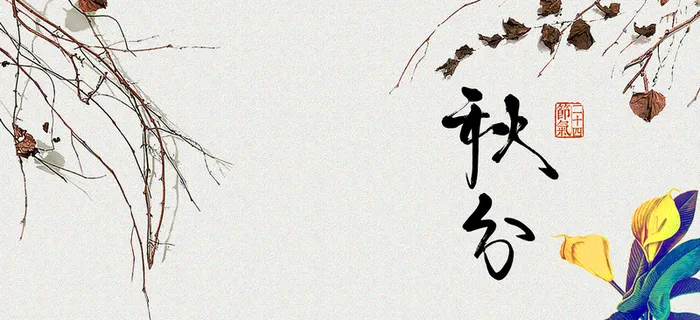 秋分
二十四
節氣